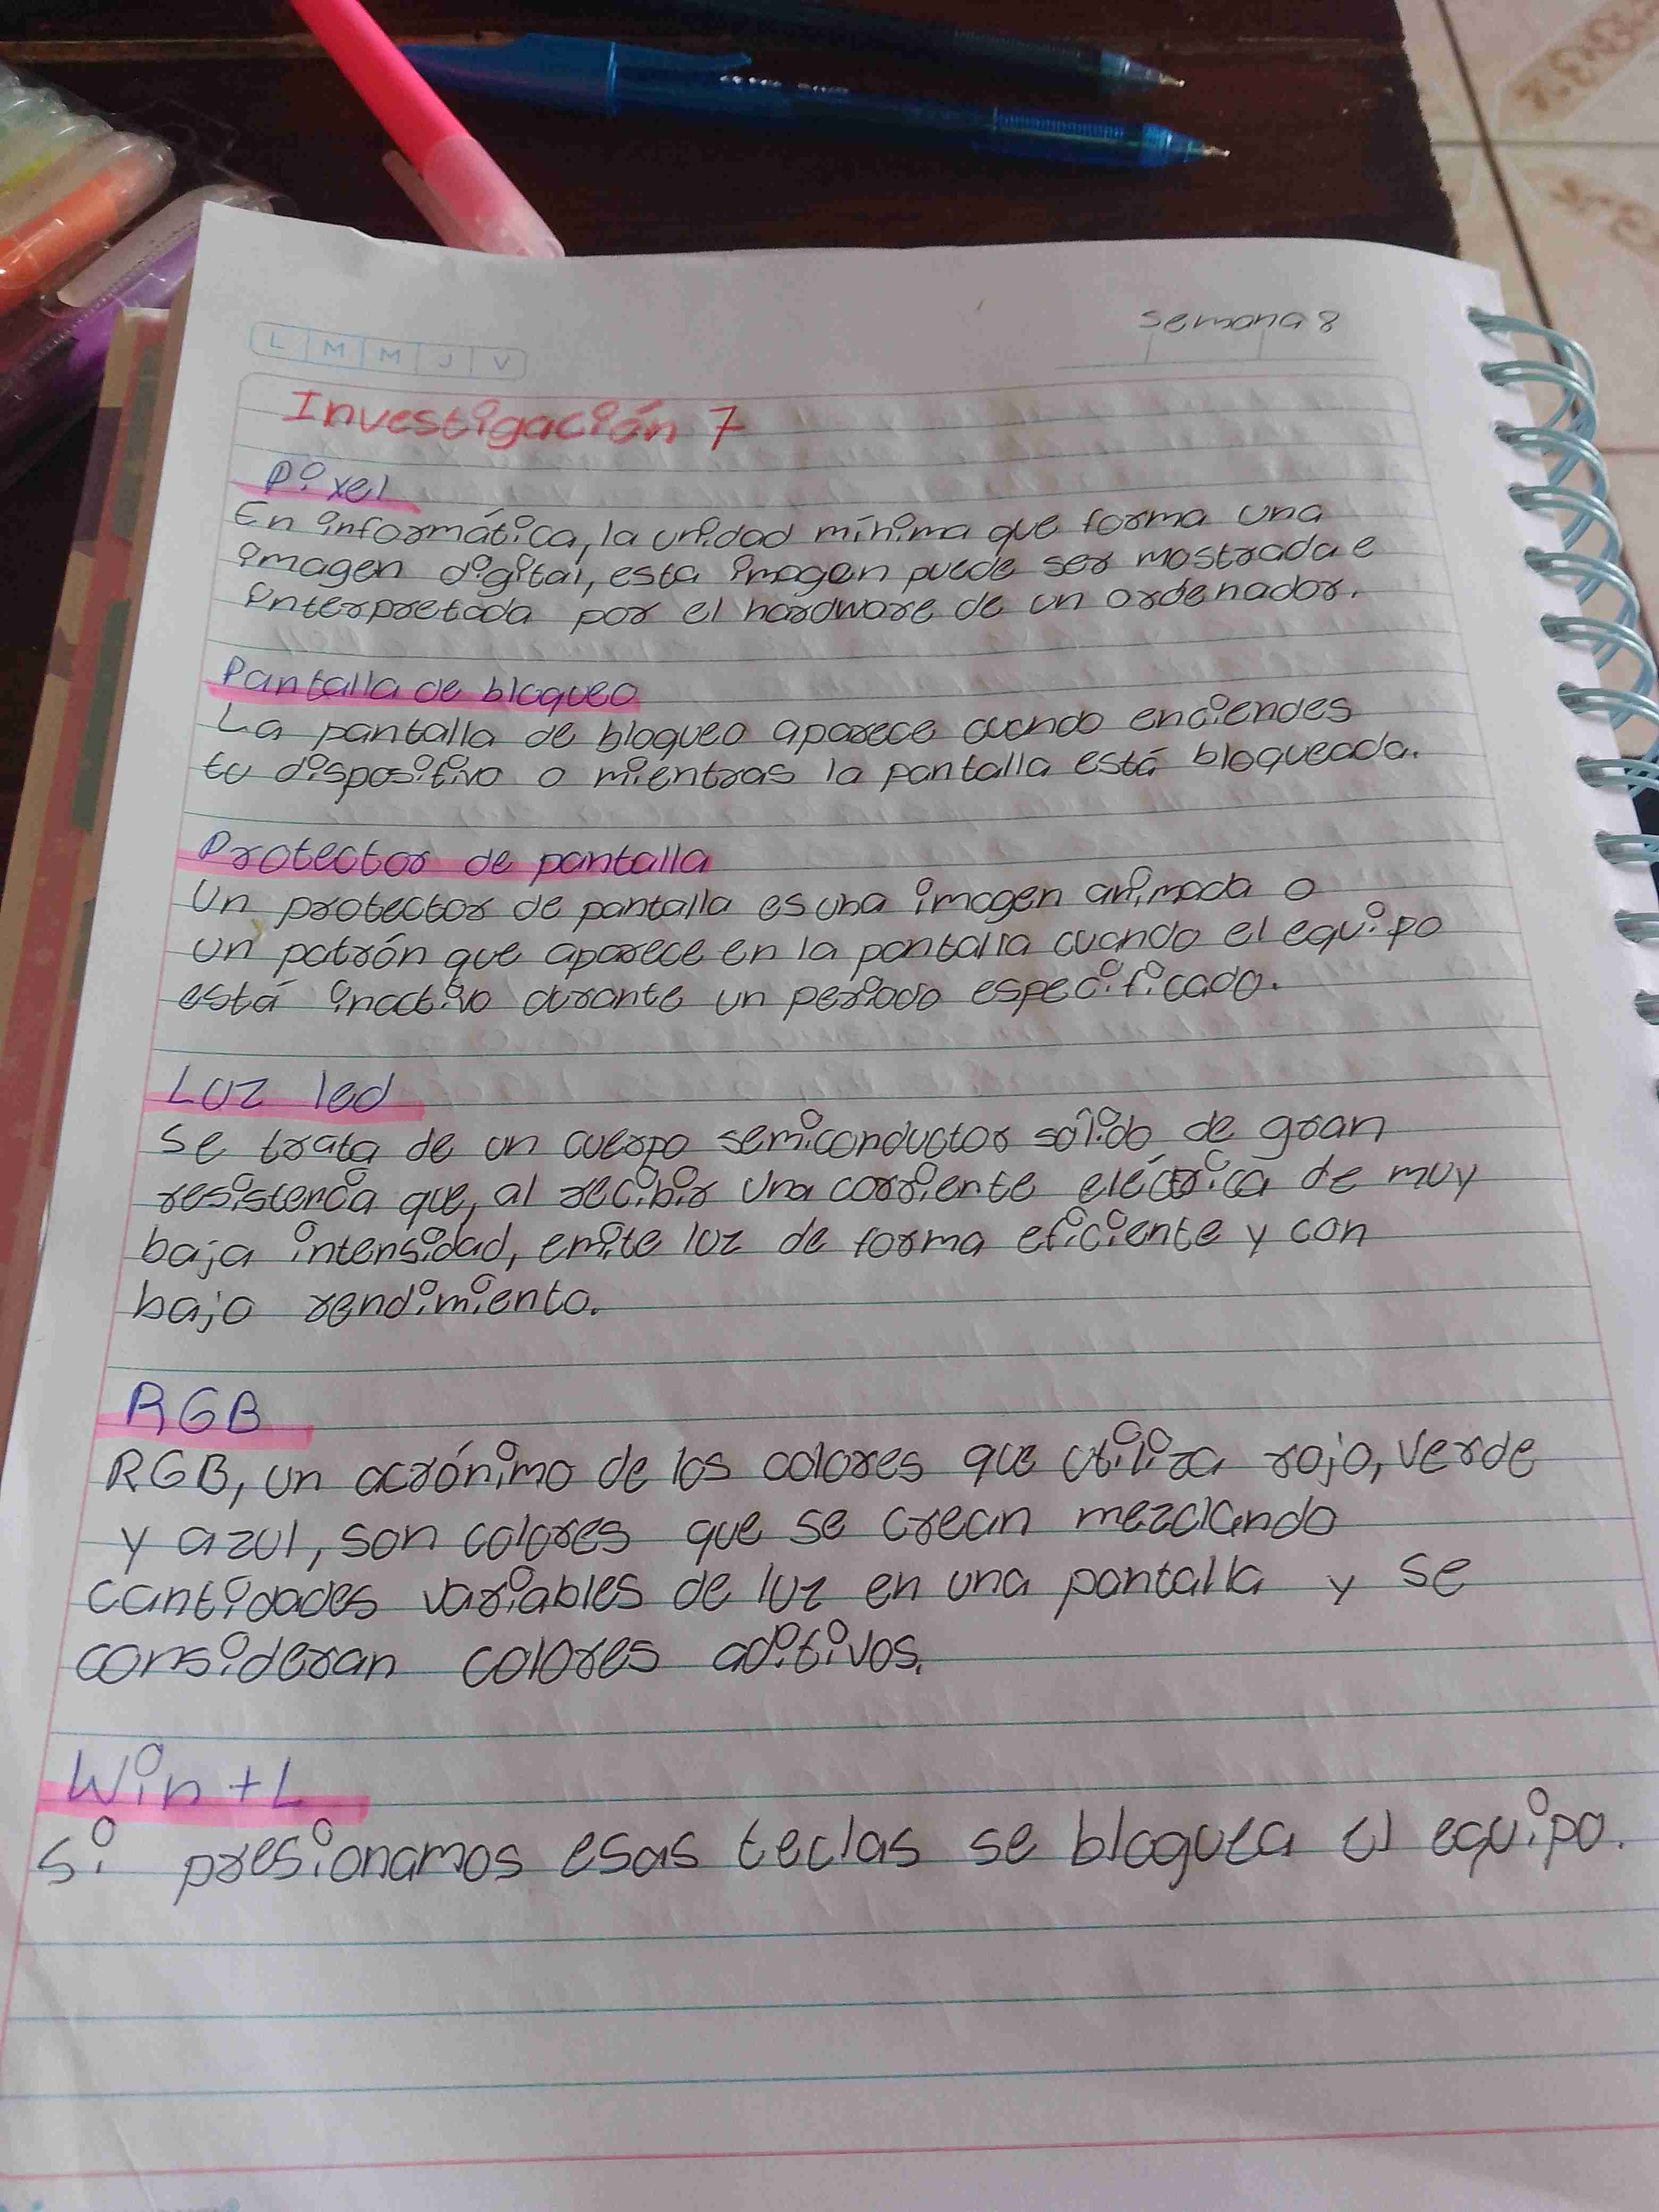 semana 8
L M M J V
Investigación 7
Pixel
En informática, la unidad mínima que forma una
imagen digital, esta imagen puede ser mostrada e
interpretada por el hardware de un ordenador.
Pantalla de bloqueo
La pantalla de bloqueo aparece cuando enciendes
tu dispositivo o mientras la pantalla está bloqueada.
Protector de pantalla
Un protector de pantalla es una imagen animada o
un patrón que aparece en la pantalla cuando el equipo
está inactivo durante un periodo especificado.
Luz led
Se trata de un cuerpo semiconductor sólido de gran
resistencia que, al recibir una corriente eléctrica de muy
baja intensidad, emite luz de forma eficiente y con
bajo rendimiento.
RGB
RGB, un acrónimo de los colores que utiliza rojo, verde
y azul, son colores que se crean mezclando
cantidades variables de luz en una pantalla y se
consideran colores aditivos.
Win + L
Si presionamos esas teclas se bloquea el equipo.